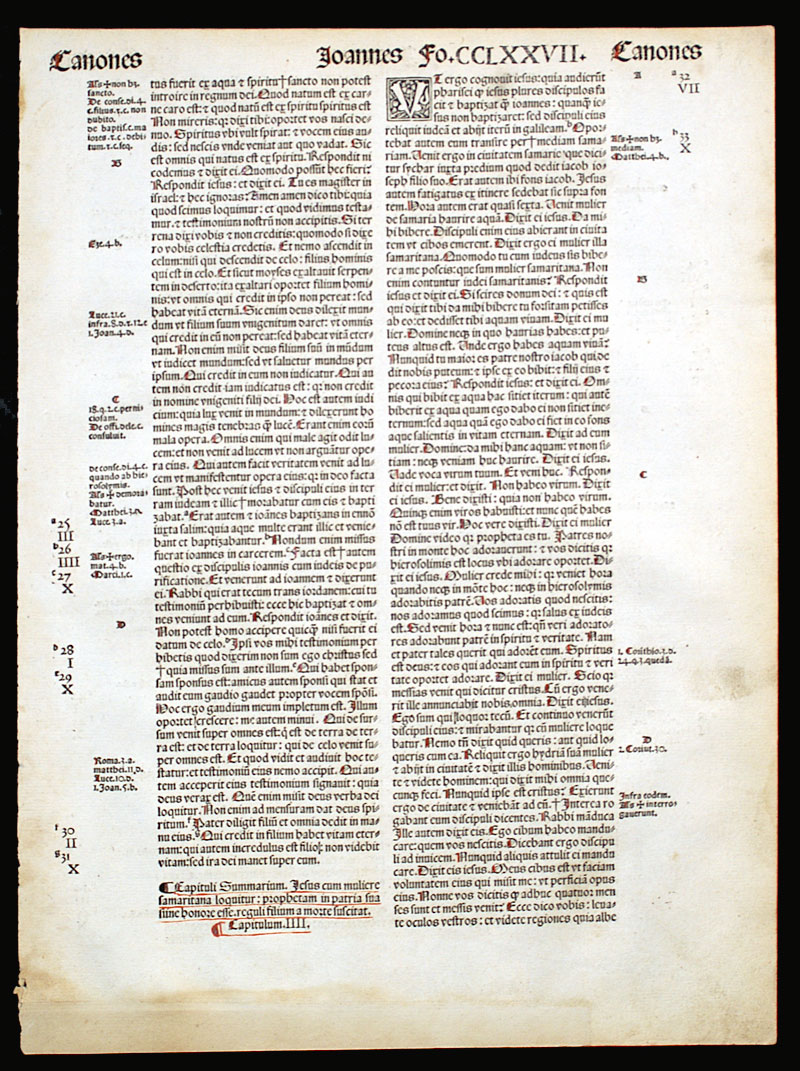 Canones
Joannes Fo.CCLXXVII.
Canones
Als ✠ non hz
sancto.
De conse.di.4.
dubito.
B
Exe.4.b.
Luce.21.c.
1.Joan.4.d.
C
ciosam.
consuluit.
de conse.di.4.c.
quando ab hie
rosolymis.
Als ✠ demora
batur.
Mattbei.3.a.
Luce.3.a.
25
III
26
IIII
27
X
Als ✠ ergo.
mat.4.b.
Marci.1.c.
D
28
I
29
X
Roma.3.a.
matthei.11.d.
Luce.10.d.
1.Joan.5.b.
30
II
31
X
tus fuerit ex aqua & spiritu†sancto non potest
introire in regnum dei. Quod natum est ex car-
ne caro est: & quod natũ est ex spiritu spiritus est
Non mireris: qꝛ dixi tibi: oportet vos nasci de-
nuo. Spiritus vbi vult spirat: & vocem eius au-
dis: sed nescis vnde veniat aut quo vadat. Sic
est omnis qui natus est ex spiritu. Respondit ni
codemus & dixit ei. Quomodo possunt hec fieri?
Respondit iesus: et dixit ei. Tu es magister in
israel: & hec ignoras? Amen amen dico tibi: quia
quod scimus loquimur: et quod vidimus testa-
mur: & testimoniũ nostrũ non accipitis. Si ter
rena dixi vobis & non creditis: quomodo si dixe
ro vobis celestia credetis. Et nemo ascendit in
celum: nisi qui descendit de celo: filius hominis
qui est in celo. Et sicut moyses exaltauit serpen-
tem in deserto: ita exaltari oportet filium homi-
nis: vt omnis qui credit in ipso non pereat: sed
habeat vitã eternã. Sic enim deus dilexit mun-
dum vt filium suum vnigenitum daret: vt omnis
qui credit in eũ non pereat: sed habeat vitã eter-
nam. Non enim misit deus filium suũ in mũdum
vt iudicet mundum: sed vt saluetur mundus per
ipsum. Qui credit in eum non iudicatur. Qui au
tem non credit iam iudicatus est: qꝛ non credit
in nomine vnigeniti filij dei. Hoc est autem iudi
cium: quia lux venit in mundum: & dilexerunt ho
mines magis tenebras qꝫ lucē. Erant enim eorũ
mala opera. Omnis enim qui male agit odit lu-
cem: et non venit ad lucem vt non arguãtur ope-
ra eius. Qui autem facit veritatem venit ad lu-
cem vt manifestentur opera eius: qꝛ in deo facta
sunt. Post hec venit iesus & discipuli eius in ter
ram iudeam & illic†morabatur cum eis & bapti
zabat. Erat autem & ioannes baptizans in ennõ
iuxta salim: quia aque multe erant illic & venie-
bant et baptizabantur. Nondum enim missus
fuerat ioannes in carcerem. Facta est†autem
questio ex discipulis ioannis cum iudeis de pu-
rificatione. Et venerunt ad ioannem & dixerunt
ei. Rabbi qui erat tecum trans iordanem: cui tu
testimoniũ perhibuisti: ecce hic baptizat & om-
nes veniunt ad eum. Respondit ioãnes et dixit.
Non potest homo accipere quicqꝫ nisi fuerit ei
datum de celo. Ipsi vos mihi testimonium per
hibetis quod dixerim non sum ego christus sed
✠quia missus sum ante illum. Qui habet spon-
sam sponsus est: amicus autem sponsi qui stat et
audit eum gaudio gaudet propter vocem spõsi.
Hoc ergo gaudium meum impletum est. Illum
oportet crescere: me autem minui. Qui de sur-
sum venit super omnes est: q̃ est de terra de ter-
ra est: et de terra loquitur: qui de celo venit su-
per omnes est. Et quod vidit et audiuit hoc te-
statur: et testimoniũ eius nemo accipit. Qui au-
tem acceperit eius testimonium signauit: quia
deus verax est. Quē enim misit deus verba dei
loquitur. Non enim ad mensuram dat deus spi-
ritum. Pater diligit filiũ et omnia dedit in ma-
nu eius. Qui credit in filium habet vitam eter-
nam: qui autem incredulus est filio: non videbit
vitam: sed ira dei manet super eum.
¶Capituli Summarium. Jesus cum muliere
samaritana loquitur: prophetam in patria sua
sine honore esse. reguli filium a morte suscitat.
¶Capitulum.IIII.
VT ergo cognouit iesus: quia audierũt
pharisei qꝫ iesus plures discipulos fa
cit & baptizat qꝫ ioannes: quanqꝫ ie-
sus non baptizaret: sed discipuli eius
reliquit iudeã et abijt iterũ in galileam. Opor-
tebat autem eum transire per†mediam sama-
riam. Uenit ergo in ciuitatem samarie que dici-
tur sychar iuxta predium quod dedit iacob io-
seph filio suo. Erat autem ibi fons iacob. Jesus
autem fatigatus ex itinere sedebat sic supra fon
tem. Hora autem erat quasi sexta. Uenit mulier
de samaria haurire aquã. Dixit ei iesus. Da mi-
hi bibere. Discipuli enim eius abierant in ciuita
tem vt cibos emerent. Dixit ergo ei mulier illa
samaritana. Quomodo tu cum iudeus sis bibe-
re a me poscis: que sum mulier samaritana? Non
enim contuntur iudei samaritanis? Respondit
iesus et dixit ei. Si scires donum dei: & quis est
qui dixit tibi da mihi bibere tu forsitam petisses
ab eo: et dedisset tibi aquam viuam. Dixit ei mu
lier. Domine neqꝫ in quo haurias habes: et pu-
teus altus est. Unde ergo habes aquam viuã?
Nunquid tu maior es patre nostro iacob qui de-
dit nobis puteum: & ipse ex eo bibit: & filij eius &
pecora eius? Respondit iesus: et dixit ei. Om-
nis qui bibit ex aqua hac sitiet iterum: qui autē
biberit ex aqua quam ego dabo ei non sitiet ine-
ternum: sed aqua quã ego dabo ei fiet in eo fons
aque salientis in vitam eternam. Dixit ad eum
mulier. Domine: da mihi hanc aquam: vt non si-
tiam: neqꝫ veniam huc haurire. Dixit ei iesus.
Uade voca virum tuum. Et veni huc. Respon-
dit ei mulier: et dixit. Non habeo virum. Dixit
ei iesus. Bene dixisti: quia non habeo virum.
Quinqꝫ enim viros habuisti: et nunc quē habes
nõ est tuus vir. Hoc vere dixisti. Dixit ei mulier
Domine video qꝛ propheta es tu. Patres no-
stri in monte hoc adorauerunt: & vos dicitis qꝛ
hierosolimis est locus vbi adorare oportet. Di-
xit ei iesus. Mulier crede mihi: qꝛ veniet hora
quando neqꝫ in mõte hoc: neqꝫ in hierosolymis
adorabitis patrē. Uos adoratis quod nescitis:
nos adoramus quod scimus: qꝛ salus ex iudeis
est. Sed venit hora & nunc est: qñ veri adorato-
res adorabunt patrē in spiritu & veritate. Nam
et pater tales querit qui adorēt eum. Spiritus
est deus: & eos qui adorant eum in spiritu & veri
tate oportet adorare. Dixit ei mulier. Scio qꝛ
messias venit qui dicitur cristus. Cũ ergo vene-
rit ille annunciabit nobis omnia. Dixit ei iesus.
Ego sum qui loquor tecũ. Et continuo venerũt
discipuli eius: & mirabantur qꝛ cũ muliere loque
batur. Nemo tñ dixit quid queris: aut quid lo-
queris cum ea. Reliquit ergo hydriã suã mulier
& abijt in ciuitatē & dixit illis hominibus. Ueni-
te & videte hominem: qui dixit mihi omnia que-
cunqꝫ feci. Nunquid ipse est cristus? Exierunt
ergo de ciuitate & veniebãt ad eũ. †Interea ro
gabant eum discipuli dicentes. Rabbi mãduca
Ille autem dixit eis. Ego cibum habeo mandu-
care: quem vos nescitis. Dicebant ergo discipu
li ad inuicem. Nunquid aliquis attulit ei mandu
care. Dixit eis iesus. Meus cibus est vt faciam
voluntatem eius qui misit me: vt perficiã opus
eius. Nonne vos dicitis qꝫ adhuc quatuor men
ses sunt et messis venit? Ecce dico vobis: leua-
te oculos vestros: et videte regiones quia albe
A
32
VII
33
X
Als ✠ non hz
mediam.
Matthei.4.b.
B
C
1.Corithio.3.d.
24.q.3.quedã.
D
2.Corint.30.
Infra eodem.
Als ✠ interro-
gauerunt.